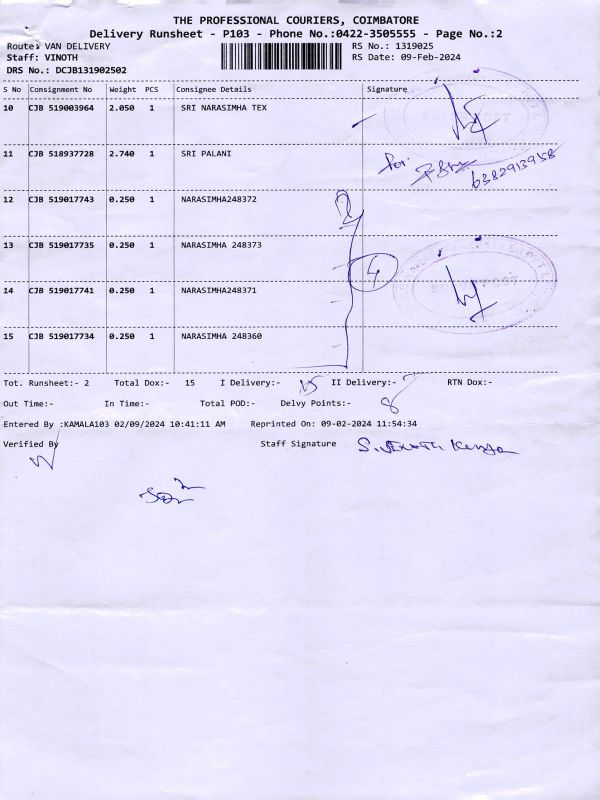 THE PROFESSIONAL COURIERS, COIMBATORE
Delivery Runsheet - P103 - Phone No.:0422-3505555 - Page No.:2
Route: VAN DELIVERY
RS No.: 1319025
Staff: VINOTH
RS Date: 09-Feb-2024
DRS No.: DCJB131902502
S No Consignment No Weight PCS Consignee Details Signature
10 CJB 519003964 2.050 1 SRI NARASIMHA TEX
11 CJB 518937728 2.740 1 SRI PALANI
for
6382913958
12 CJB 519017743 0.250 1 NARASIMHA248372
13 CJB 519017735 0.250 1 NARASIMHA 248373
4
14 CJB 519017741 0.250 1 NARASIMHA248371
15 CJB 519017734 0.250 1 NARASIMHA 248360
Tot. Runsheet:- 2 Total Dox:- 15 I Delivery:- 15 II Delivery:- RTN Dox:-
Out Time:- In Time:- Total POD:- Delvy Points:- 8
Entered By :KAMALA103 02/09/2024 10:41:11 AM Reprinted On: 09-02-2024 11:54:34
Verified By Staff Signature